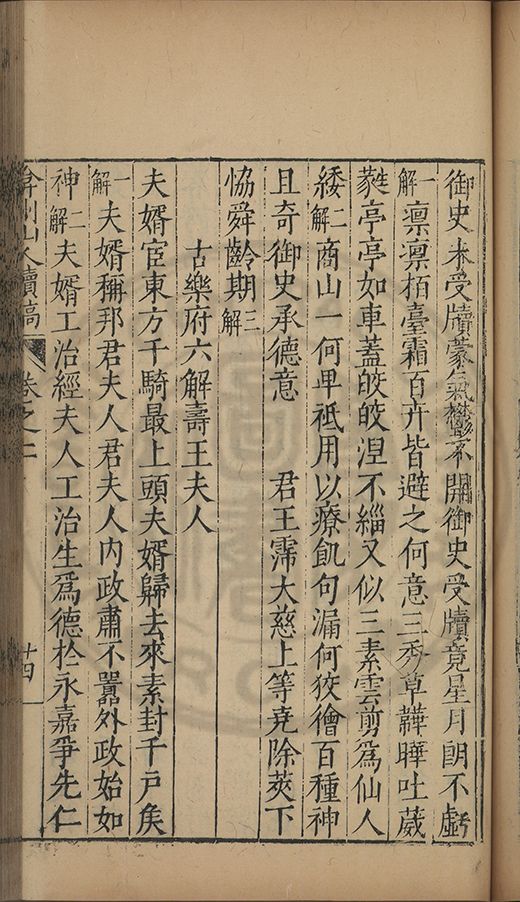 御史未受牘蒙氣鬱不開御史受牘竟星月朗不虧
一解凛凛栢臺霜百卉皆避之何意三秀草韡曄吐葳
蕤亭亭如車蓋皎皎涅不緇又似三素雲剪爲仙人
緌二解商山一何卑祗用以療飢句漏何狡獪百種神
且奇御史承德意　君王霈大慈上等堯除莢下
恊舜齡期三解
古樂府六解壽王夫人
夫婿宦東方千騎最上頭夫婿歸去來素封千戶矦
一解夫婿稱邦君夫人君夫人內政肅不嚚外政始如
神二解夫婿工治經夫人工治生爲德於永嘉爭先仁
弇州山人續稿　卷之二　十四